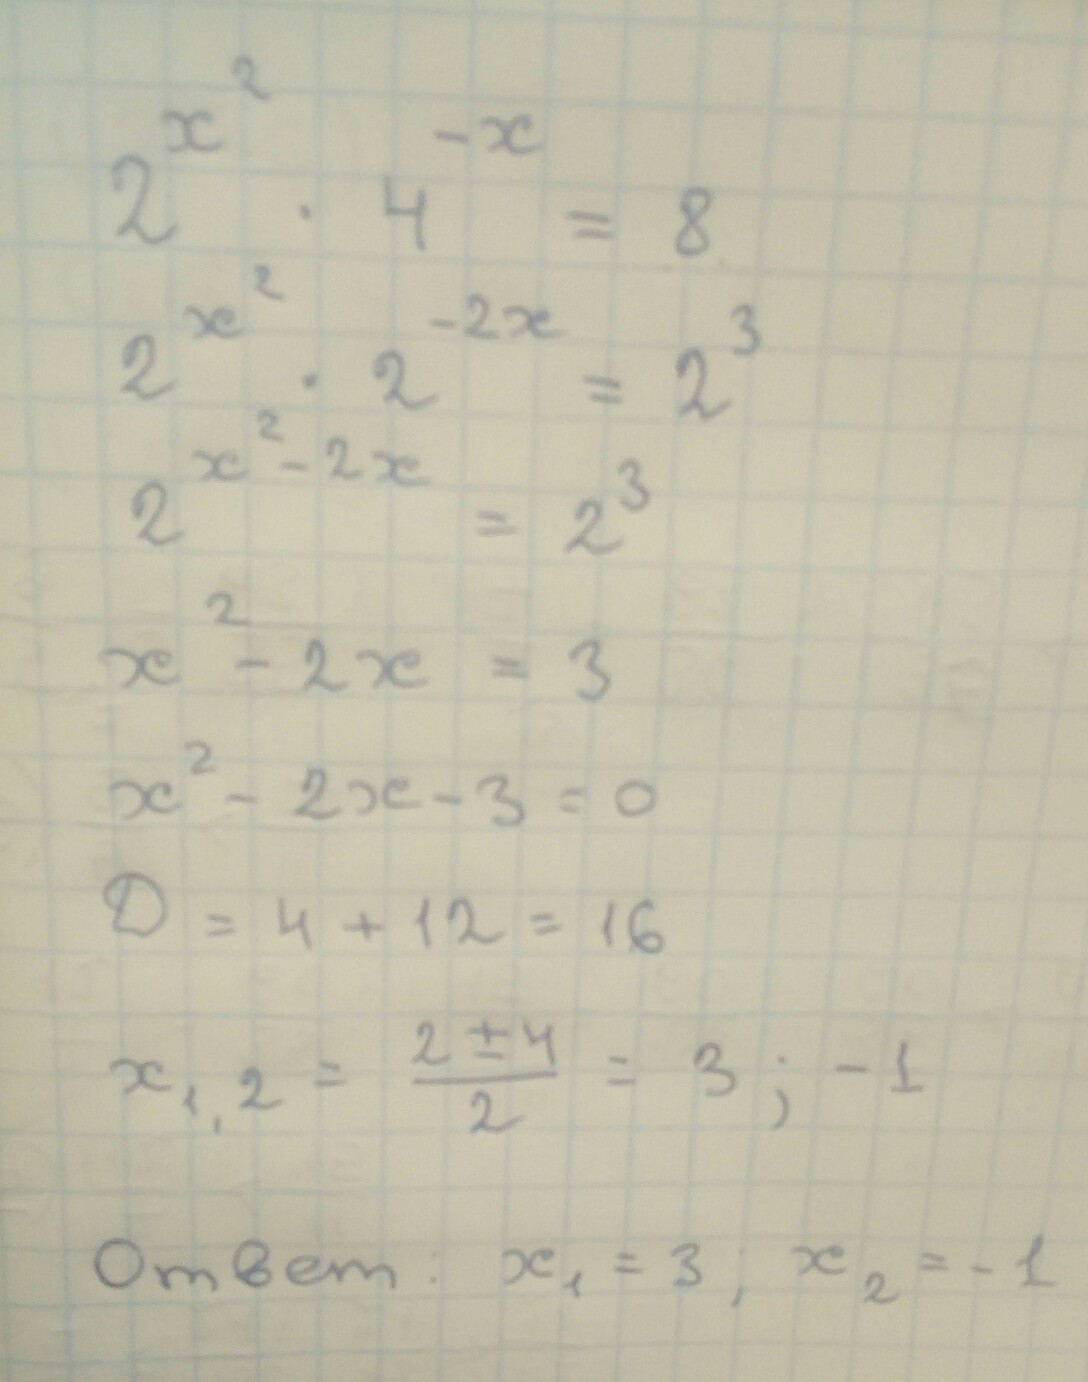 2^{x^2} · 4^{-x} = 8
2^{x^2} · 2^{-2x} = 2^3
2^{x^2-2x} = 2^3
x^2 - 2x = 3
x^2 - 2x - 3 = 0
D = 4 + 12 = 16
x_{1,2} = \frac{2 ± 4}{2} = 3 ; -1
Ответ: x_1 = 3; x_2 = -1